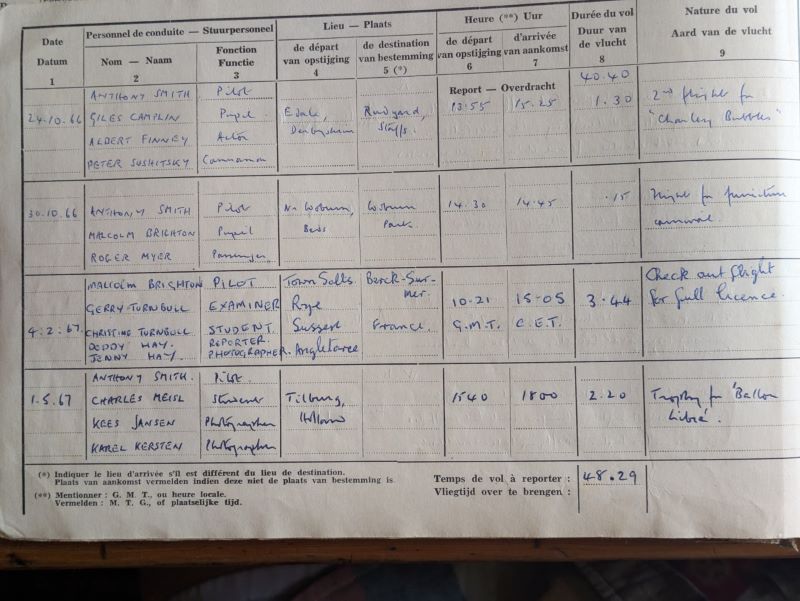 Date
Datum
1
Personnel de conduite — Stuurpersoneel
Nom — Naam
2
Fonction
Functie
3
Lieu — Plaats
de départ
van opstijging
4
de destination
van bestemming
5 (*)
Heure (**) Uur
de départ
van opstijging
6
d'arrivée
van aankomst
7
Durée du vol
Duur van
de vlucht
8
Nature du vol
Aard van de vlucht
9
Report — Overdracht
40.40
ANTHONY SMITH Pilot
24.10.66 GILES CAMPLIN Pupil Edale, Rudyard, 13.55 15.25 1.30 2nd flight for
ALBERT FINNEY Actor Derbyshire Staffs. "Charley Bubbles"
PETER SUSHITSKY Cameraman
30.10.66 ANTHONY SMITH Pilot Nr Woburn, Woburn 14.30 14.45 .15 Flight for
MALCOLM BRIGHTON Pupil Beds Park.
ROGER MYER Passenger
MALCOLM BRIGHTON PILOT Town Salts Berck-Sur- Check out flight
GERRY TURNBULL EXAMINER Rye mer. 10.21 15.05 3.44 for full licence.
4.2.67. CHRISTINE TURNBULL STUDENT. Sussex France. G.M.T. C.E.T.
DODDY HAY. REPORTER.
JENNY HAY. PHOTOGRAPHER. Angleterre
ANTHONY SMITH. Pilot.
1.5.67 CHARLES MEISL Tilburg, 1540 1800 2.20 Trophy for 'Ballon
KEES JANSEN Photographer Holland Libre'.
KAREL KERSTEN Photographer
(*) Indiquer le lieu d'arrivée s'il est différent du lieu de destination.
Plaats van aankomst vermelden indien deze niet de plaats van bestemming is.
(**) Mentionner : G. M. T., ou heure locale.
Vermelden : M. T. G., of plaatselijke tijd.
Temps de vol à reporter : 48.29
Vliegtijd over te brengen :